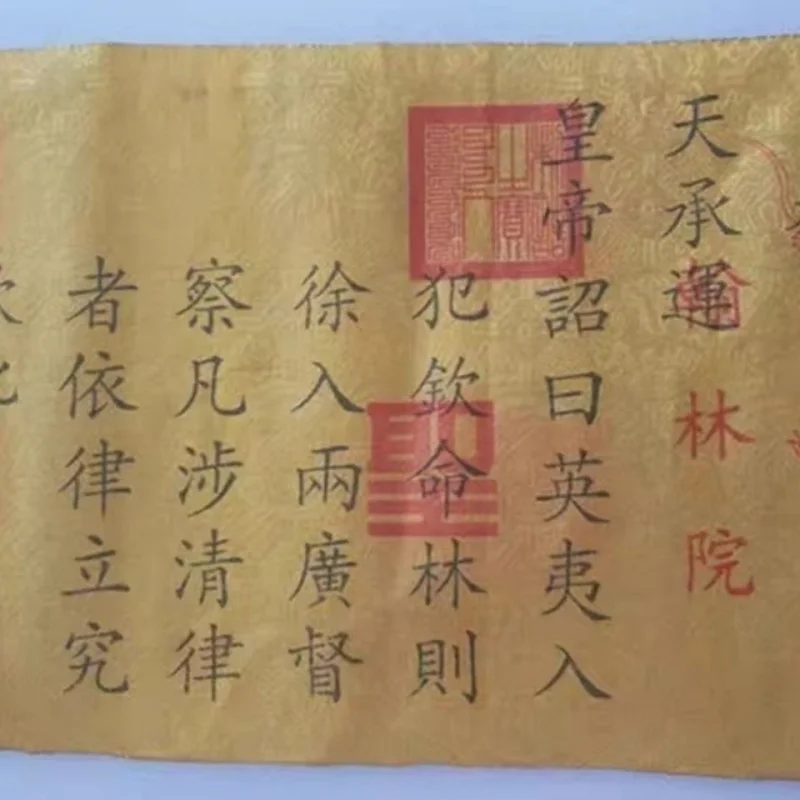 天承運
皇帝詔曰英夷入
犯欽命林則
徐入兩廣督
察凡涉清律
者依律立究
欽此
翰林院
聖